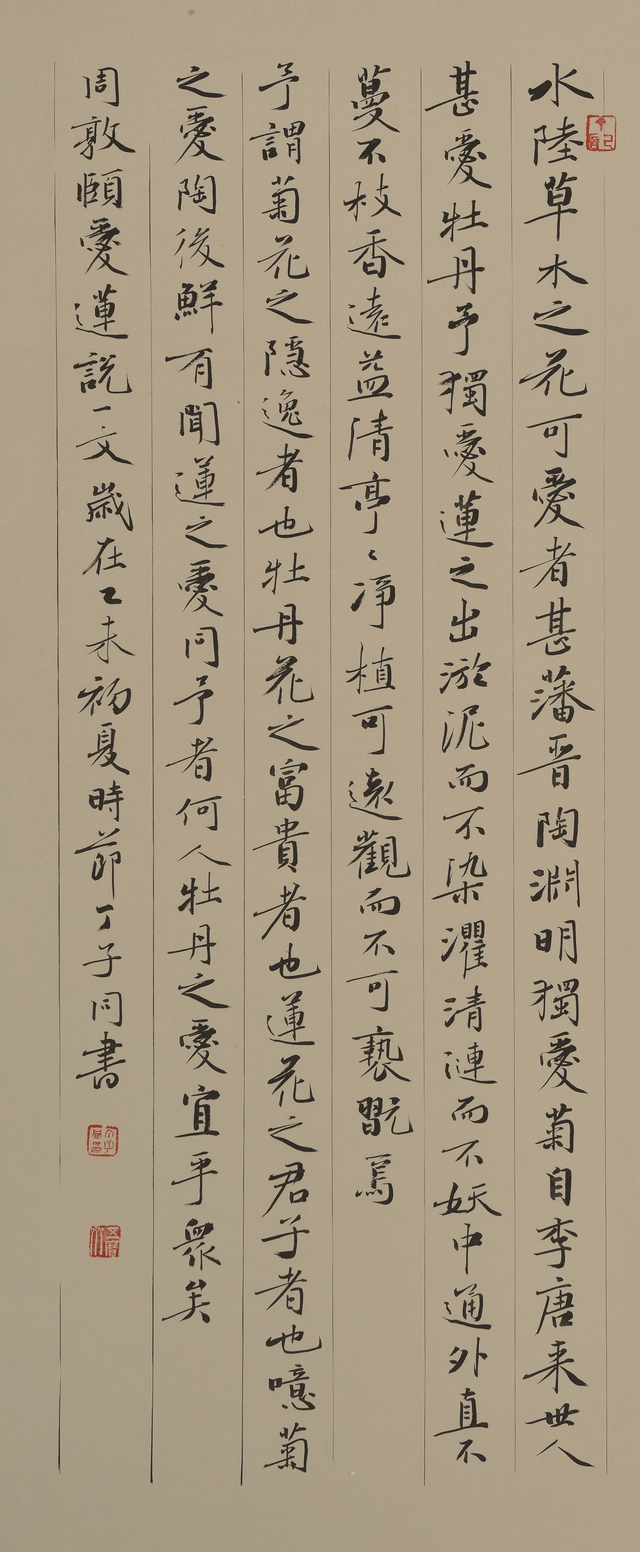 水陸草木之花可愛者甚藩晉陶淵明獨愛菊自李唐来世人
甚愛牡丹予獨愛蓮之出淤泥而不染濯清漣而不妖中通外直不
蔓不枝香遠益清亭〻凈植可遠觀而不可褻翫焉
予謂菊花之隱逸者也牡丹花之富貴者也蓮花之君子者也噫菊
之愛陶後鮮有聞蓮之愛同予者何人牡丹之愛宜乎衆矣
周敦頤愛蓮説一文歲在乙未初夏時節丁子同書